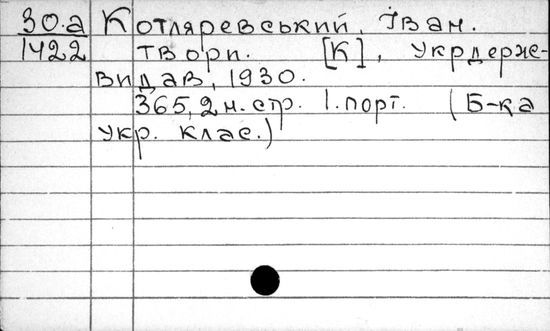 30.а Котляревський, Іван.
1422 твори. [К], Укрдерж-
видав, 1930.
365, 2 н. стр. 1. порт. (Б-ка
укр. клас.)